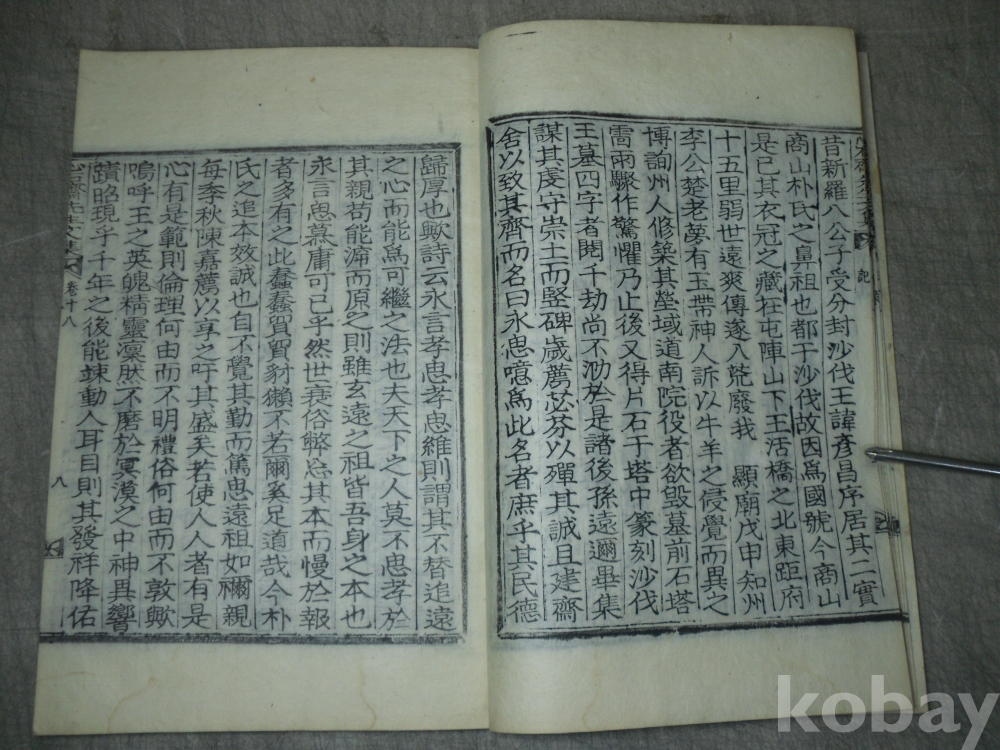 昔新羅八公子受分封沙伐王諱彦昌序居其二實
商山朴氏之鼻祖也都于沙伐故因爲國號今商山
是已其衣冠之藏在屯陣山下王活橋之北東距府
十五里弱世遠爽傳遂入荒廢我 顯廟戊申知州
李公楚老夢有玉帶神人訴以牛羊之侵覺而異之
博詢州人修築其塋域道南院役者欲毁墓前石塔
雷雨驟作驚懼乃止後又得片石于塔中篆刻沙伐
王墓四字者閱千劫尚不泐於是諸後孫遠邇畢集
謀其虔守崇土而竪碑歲薦苾芬以殫其誠且建齋
舍以致其齊而名曰永思噫爲此名者庶乎其民德
歸厚也歟詩云永言孝思孝思維則謂其不替追遠
之心而能爲可繼之法也夫天下之人莫不思孝於
其親苟能溯而原之則雖玄遠之祖皆吾身之本也
永言思慕庸可已乎然世衰俗弊忘其本而慢於報
者多有之此蠢蠢貿貿豺獺不若爾奚足道哉今朴
氏之追本效誠也自不覺其勤而篤思遠祖如禰親
每季秋陳嘉薦以享之吁其盛矣若使人人者有是
心有是範則倫理何由而不明禮俗何由而不敦歟
嗚呼王之英魄精靈凜然不磨於冥漠之中神異響
蹟昭現乎千年之後能竦動人耳目則其發祥降佑
卷十八
八
記
kobay